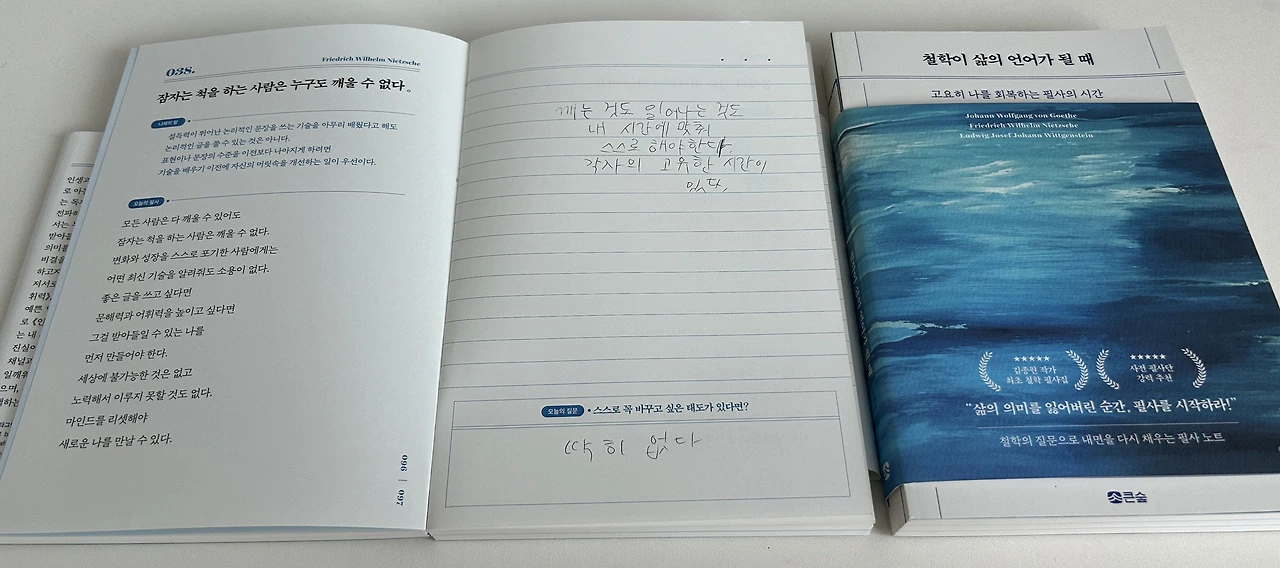 038.
Friedrich Wilhelm Nietzsche
잠자는 척을 하는 사람은 누구도 깨울 수 없다.
니체의 말
설득력이 뛰어난 논리적인 문장을 쓰는 기술을 아무리 배웠다고 해도
논리적인 글을 쓸 수 있는 것은 아니다.
표현이나 문장의 수준을 이전보다 나아지게 하려면
기술을 배우기 이전에 자신의 머릿속을 개선하는 일이 우선이다.
오늘의 필사
모든 사람은 다 깨울 수 있어도
잠자는 척을 하는 사람은 깨울 수 없다.
변화와 성장을 스스로 포기한 사람에게는
어떤 최신 기술을 알려줘도 소용이 없다.
좋은 글을 쓰고 싶다면
문해력과 어휘력을 높이고 싶다면
그걸 받아들일 수 있는 나를
먼저 만들어야 한다.
세상에 불가능한 것은 없고
노력해서 이루지 못할 것도 없다.
마인드를 리셋해야
새로운 나를 만날 수 있다.
096 | 097
깨는 것도 일어나는 것도
내 시간에 맞춰
스스로 해야한다.
각자의 고유한 시간이
있다.
오늘의 질문
스스로 꼭 바꾸고 싶은 태도가 있다면?
딱히 없다
철학이 삶의 언어가 될 때
고요히 나를 회복하는 필사의 시간
Johann Wolfgang von Goethe
Friedrich Wilhelm Nietzsche
Ludwig Josef Johann Wittgenstein
김종원 작가
최초 철학 필사집
사전 필사단
강력 추천
“삶의 의미를 잃어버린 순간, 필사를 시작하라!”
철학의 질문으로 내면을 다시 채우는 필사 노트
큰숲